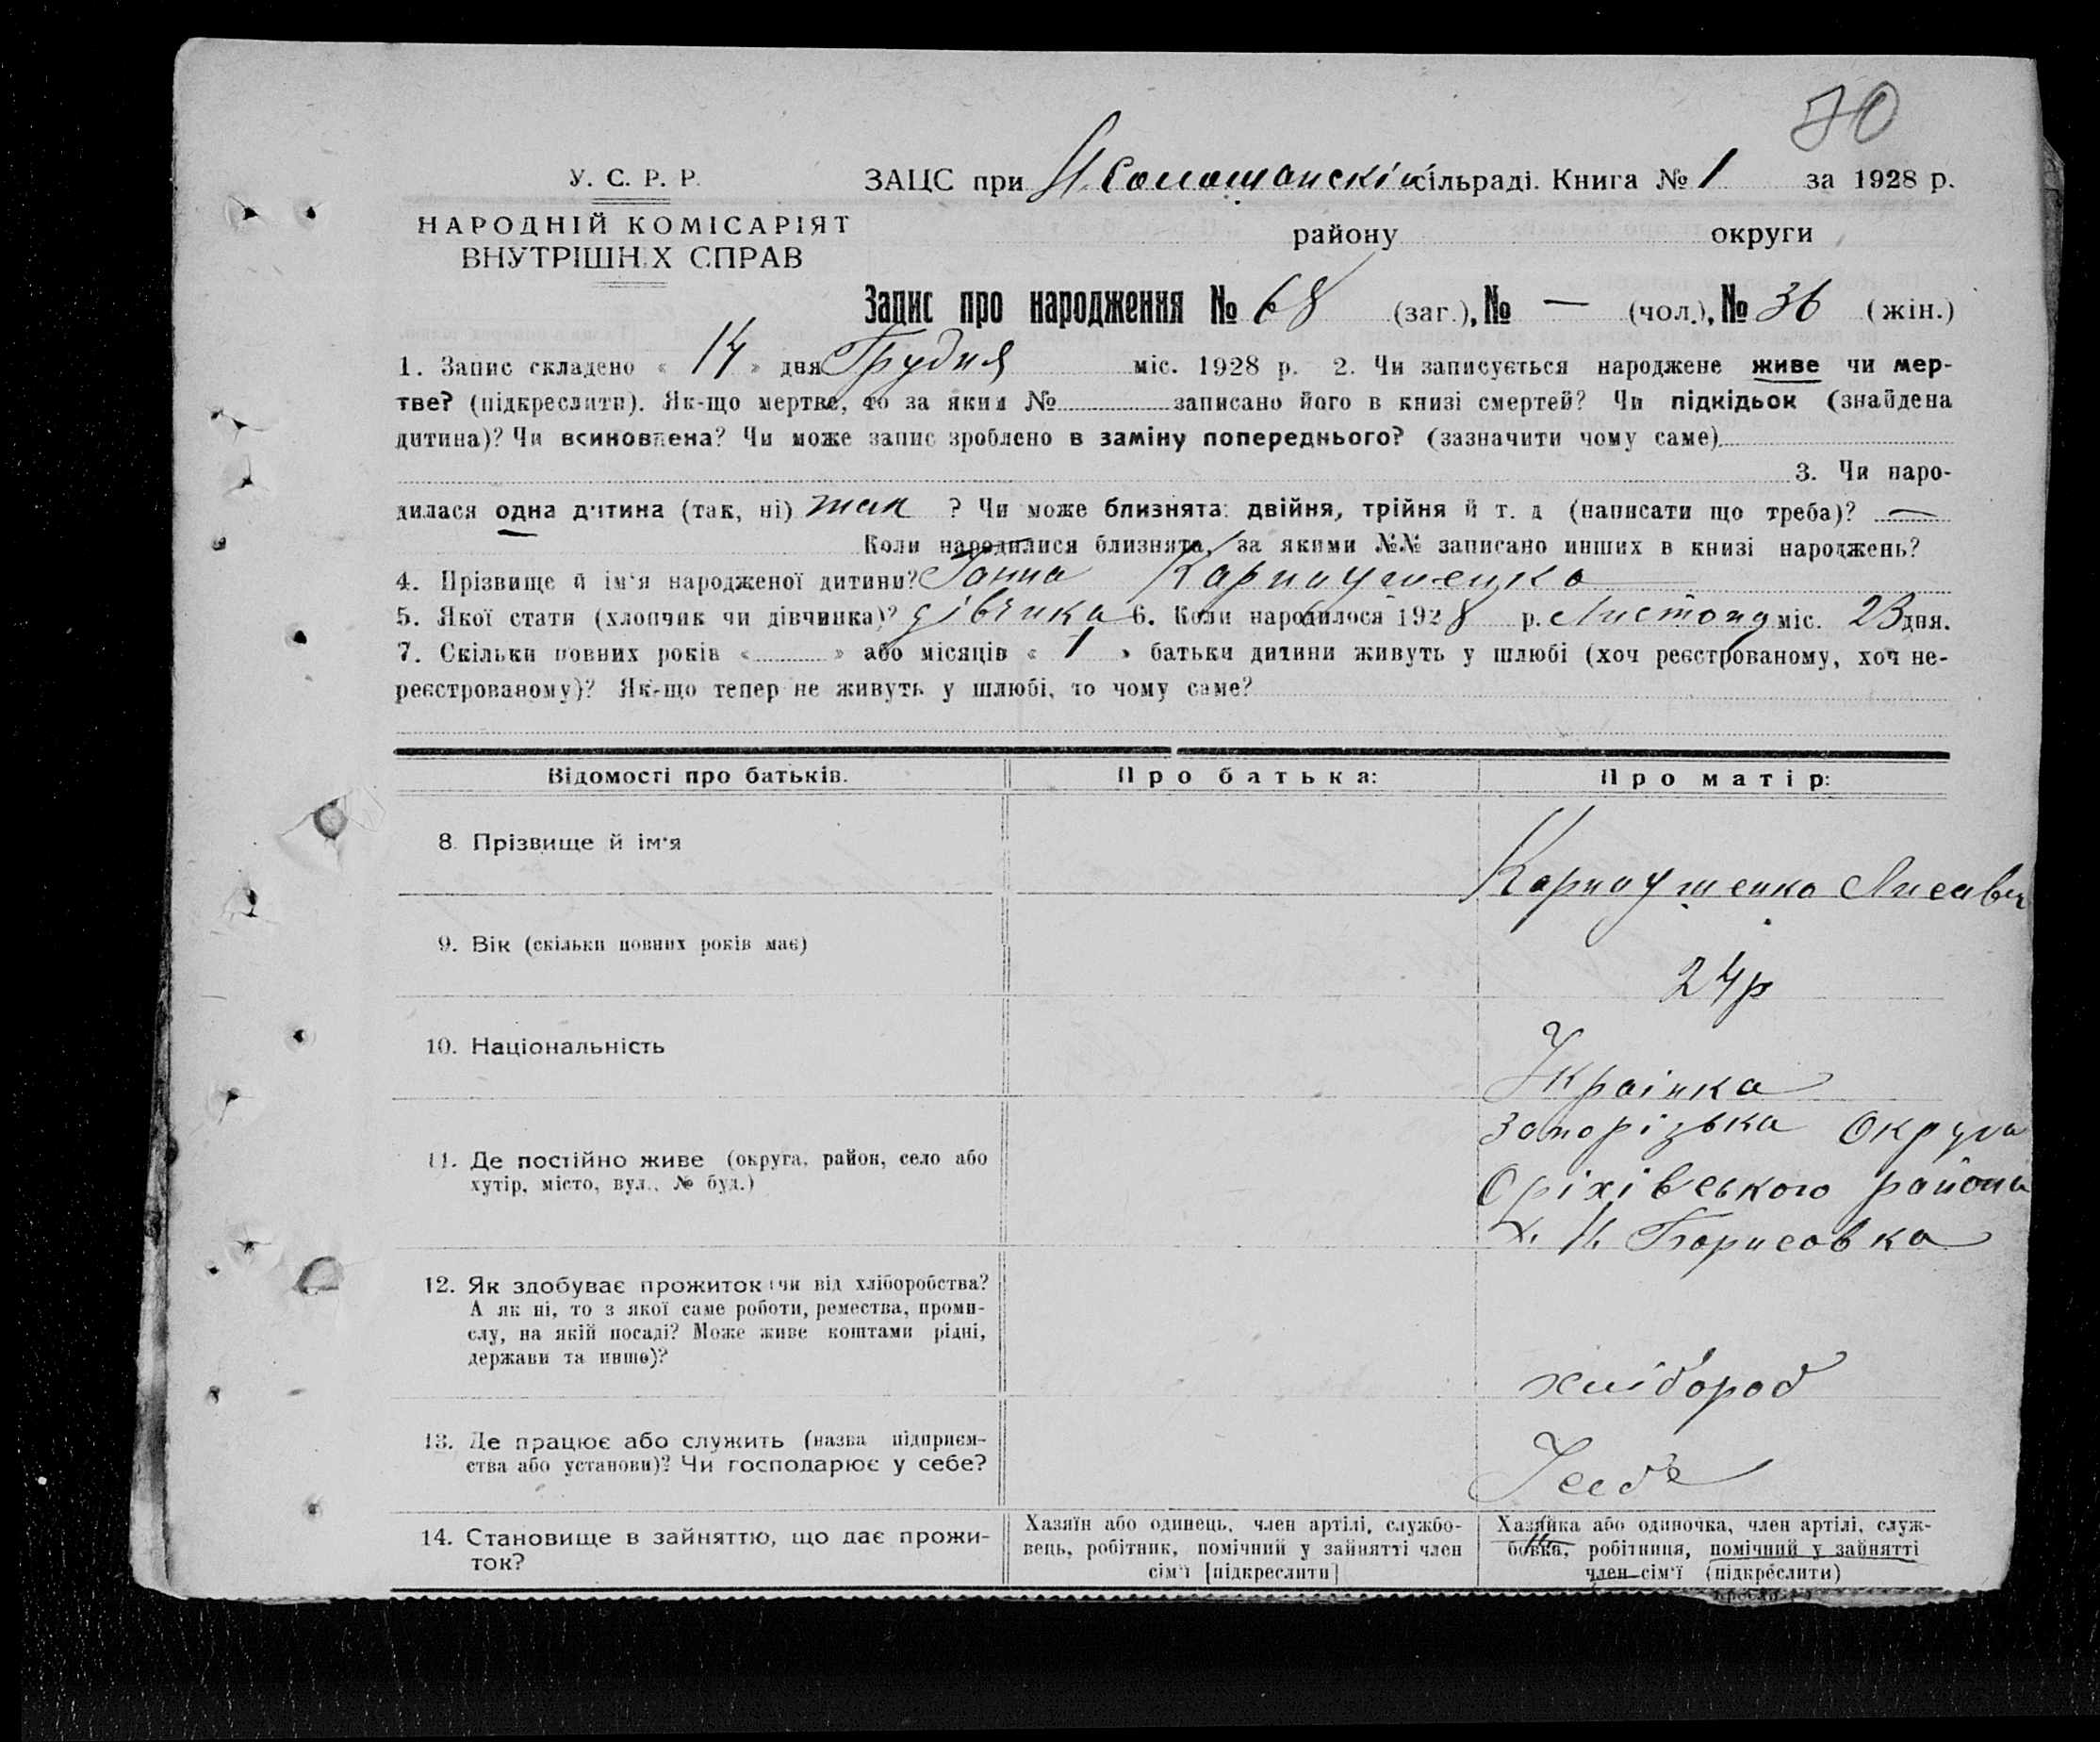 70
У. С. Р. Р. ЗАЦС при сільраді. Книга № 1 за 1928 р.
НАРОДНІЙ КОМІСАРІЯТ
ВНУТРІШНІХ СПРАВ
району округи
Запис про народження № 68 (заг.), № — (чол.), № 36 (жін.)
1. Запис складено « 14 » дня Грудня міс. 1928 р. 2. Чи записується народжене живе чи мер-
тве? (підкреслити). Як-що мертве, то за яким № записано його в книзі смертей? Чи підкідьок (знайдена
дитина)? Чи всиновлена? Чи може запис зроблено в заміну попереднього? (зазначити чому саме)
3. Чи наро-
дилася одна дитина (так, ні) так ? Чи може близнята: двійня, трійня й т. д (написати що треба)? —
Коли народилися близнята, за якими №№ записано инших в книзі народжень?
4. Прізвище й ім'я народженої дитини? Ганна Карнаушенко
5. Якої стати (хлопчик чи дівчинка)? дівчика 6. Коли народилося 1928 р. Листопад міс. 23 дня.
7. Скільки повних років « » або місяців « 1 » батьки дитини живуть у шлюбі (хоч реєстрованому, хоч не-
реєстрованому)? Як-що тепер не живуть у шлюбі, то чому саме?
Відомості про батьків. Про батька: Про матір:
8. Прізвище й ім'я Карнаушенко Лисавет
9. Вік (скільки повних років має) 24р
10. Національність Українка
11. Де постійно живе (округа, район, село або
хутір, місто, вул., № буд.)
Запорізька Округа
Оріхівського района
х. Н Борисовка
12. Як здобуває прожиток (чи від хліборобства?
А як ні, то з якої саме роботи, ремества, проми-
слу, на якій посаді? Може живе коштами рідні,
держави та инше)?
хлібороб
13. Де працює або служить (назва підприєм-
ства або установи)? Чи господарює у себе?
У себе
14. Становище в зайняттю, що дає прожи-
ток?
Хазяїн або одинець, член артілі, службо-
вець, робітник, помічний у зайнятті член
сім'ї [підкреслити]
Хазяйка або одиночка, член артілі, служ-
бовка, робітниця, помічний у зайнятті
член сім'ї (підкреслити)